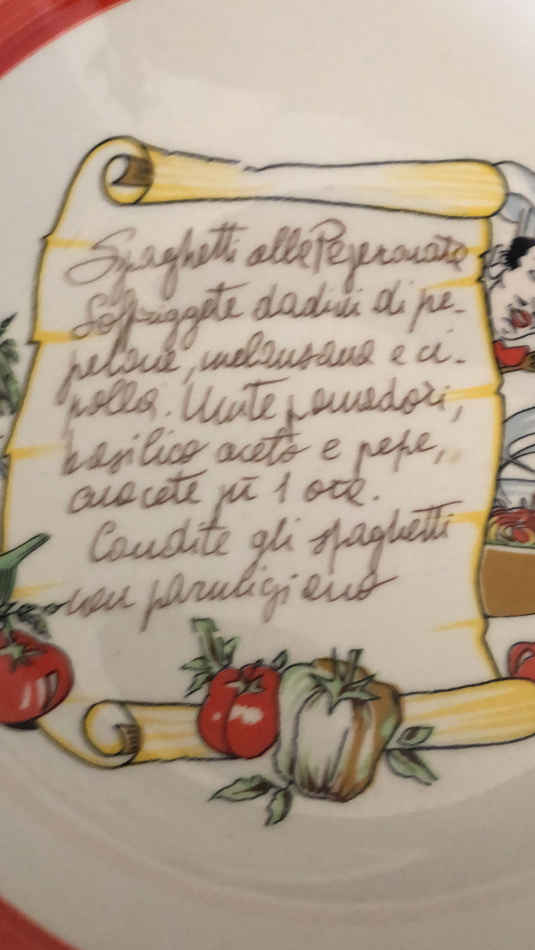 Spaghetti alla Peperonata
Soffriggete dadini di pe-
perone, melanzana e ci-
polla. Unite pomodori,
basilico aceto e pepe,
cuocete per 1 ora.
Condite gli spaghetti
con parmigiano